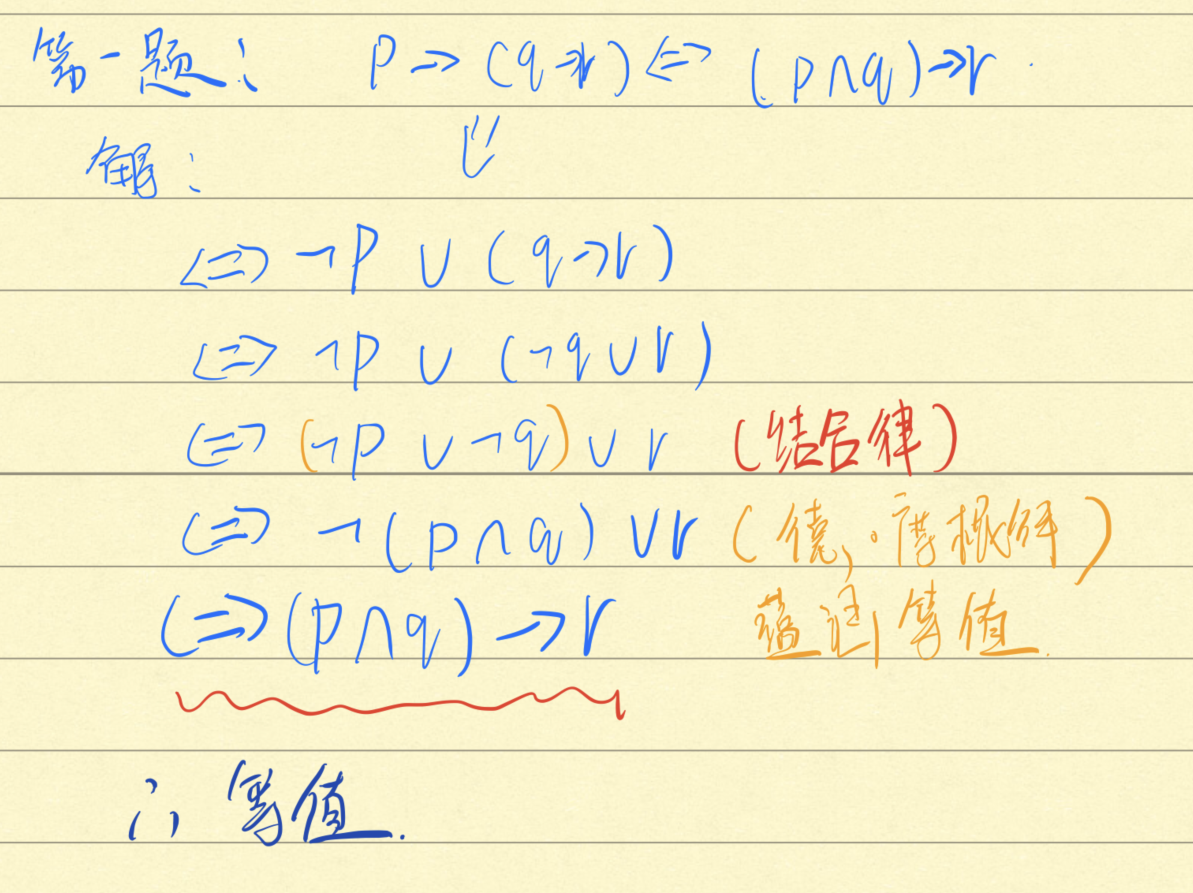 第一题： P → (q→r) ⇔ (p∧q)→r.
⇓
解：
⇔ ¬P ∨ (q→r)
⇔ ¬P ∨ (¬q∨r)
⇔ (¬P ∨ ¬q) ∨ r （结合律）
⇔ ¬(p∧q) ∨r （德·摩根律）
⇔ (P∧q) → r 蕴涵等值.
∴ 等值.